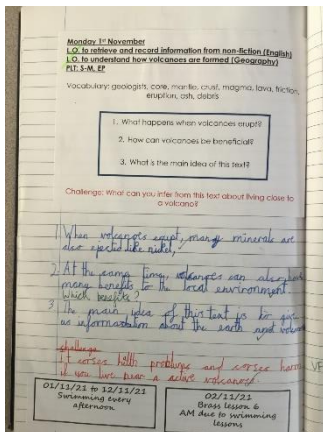 Monday 1st November
L.O. to retrieve and record information from non-fiction (English)
L.O. to understand how volcanoes are formed (Geography)
PLT: S-M, EP
Vocabulary: geologists, core, mantle, crust, magma, lava, friction,
eruption, ash, debris
1. What happens when volcanoes erupt?
2. How can volcanoes be beneficial?
3. What is the main idea of this text?
Challenge: What can you infer from this text about living close to
a volcano?
1 When volcanoes erupt, many minerals are
also ejected like nickel,
2 At the same time, volcanoes can also have
many benefits to the local environment.
Which benefits?
3 The main idea of this text is to give
us information about the earth and
challenge
It health problems and harm
if you live near a active volcano
01/11/21 to 12/11/21
Swimming every
afternoon
02/11/21
Brass lesson 6
AM due to swimming
lessons
VF